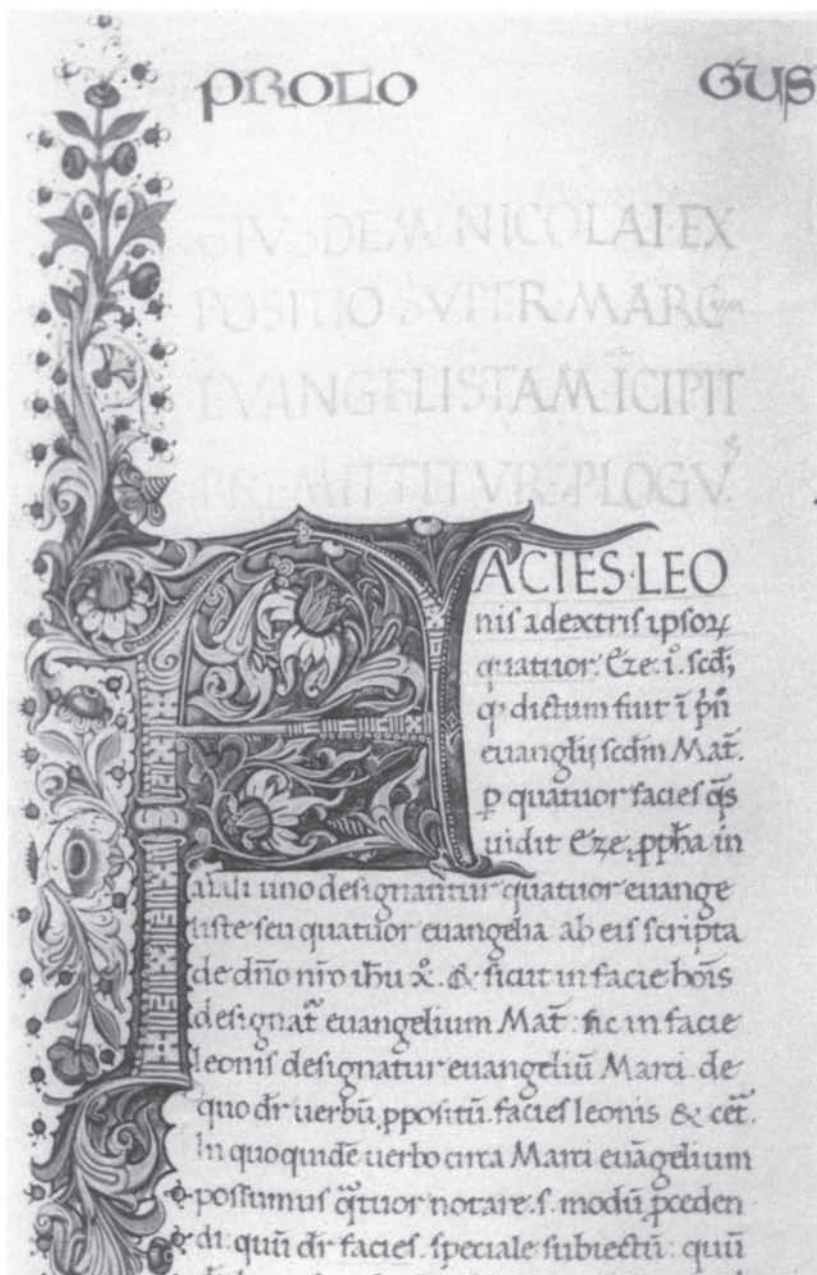 PROLO GUS
EIVSDEM NICOLAI EX
POSITIO SVPER MARCUM
EVANGELISTAM ĪCIPIT
PREMITTITVR PLOGVS
FACIES·LEO
nis adextris ipsoꝝ
quatuor. Eze. i. scd;
qꝫ dictum fuit ī pn̄
euanglij scdm Mat̄.
ꝑ quatuor facies q̄s
uidit Eze. ꝓpha in
uno designantur quatuor euange
liste seu quatuor euangelia ab eis scripta
de dn̄o nr̄o ihu x̄. & sicut in facie hoīs
designat̄ euangelium Mat̄: sic in facie
leonis designatur euangeliū Marci. de
quo dr̄ uerbū ꝓpositū. facies leonis & cet̄.
In quoquidē uerbo circa Marci euāgelium
possumus q̄tuor notare. s. modū ꝓceden
di: quū dr̄ facies. speciale subiectū: quū